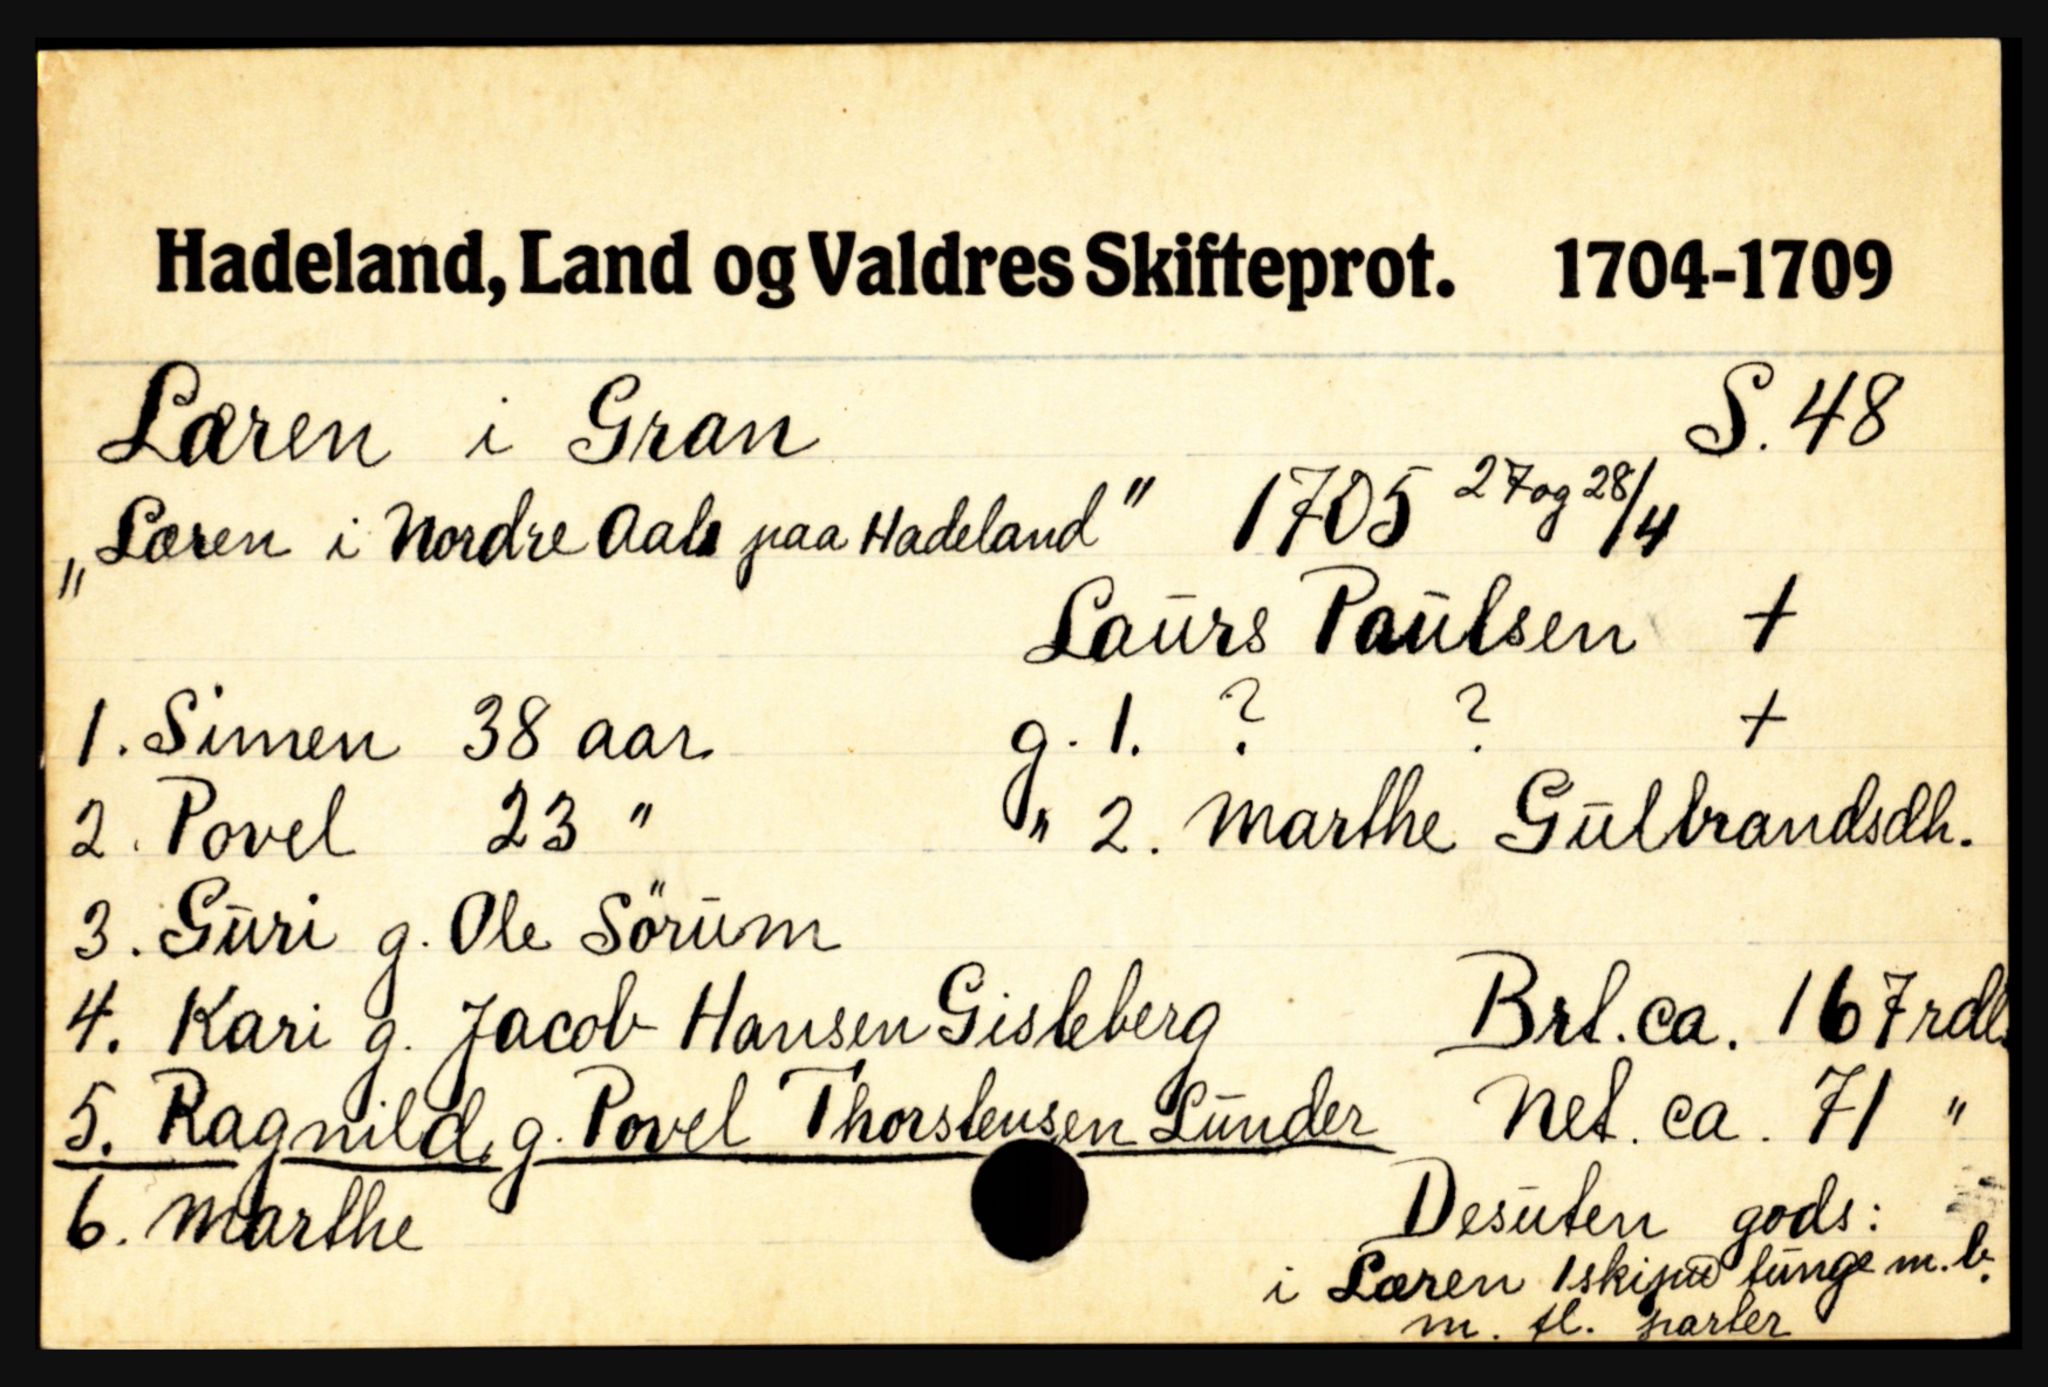 Hadeland, Land og Valdres Skifteprot. 1704-1709
Læren i Gran S. 48
„Læren i Nordre Aals paa Hadeland" 1705 27 og 28/4
Laurs Paulsen +
1. Simen 38 aar g. 1. ? ? +
2. Povel 23 " " 2. Marthe Gulbrandsdh.
3. Guri g. Ole Sörum
4. Kari g. Jacob Hansen Gisleberg Brt. ca. 167 rdl.
5. Ragnild g. Povel Thorstensen Lunder Net. ca. 71 "
6. Marthe Desuten gods:
i Læren 1 skipud tunge m. b.
m. fl. parter